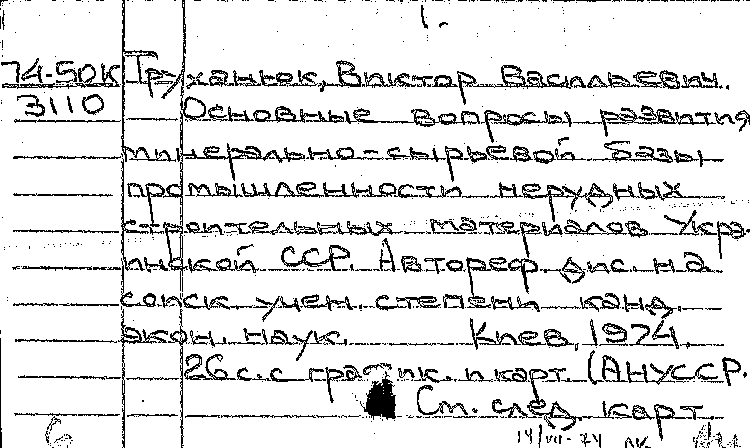 1.
74-50К Труханюк, Виктор Васильевич.
3110 Основные вопросы развития
минерально-сырьевой базы
промышленности нерудных
строительных материалов Укра-
инской ССР. Автореф. дис. на
соиск. учен. степени канд.
экон. наук. Киев, 1974.
26 с. с график. и карт. (АН УССР.
См. след. карт.
14/VII-74